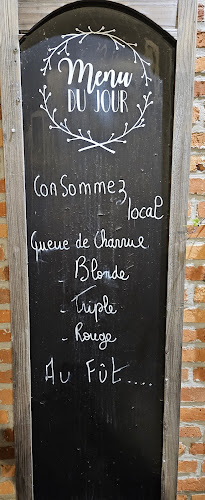 Menu
DU JOUR
ConSommez
local
Queue de Charrue
Blonde
- Triple
- Rouge
Au Fût....